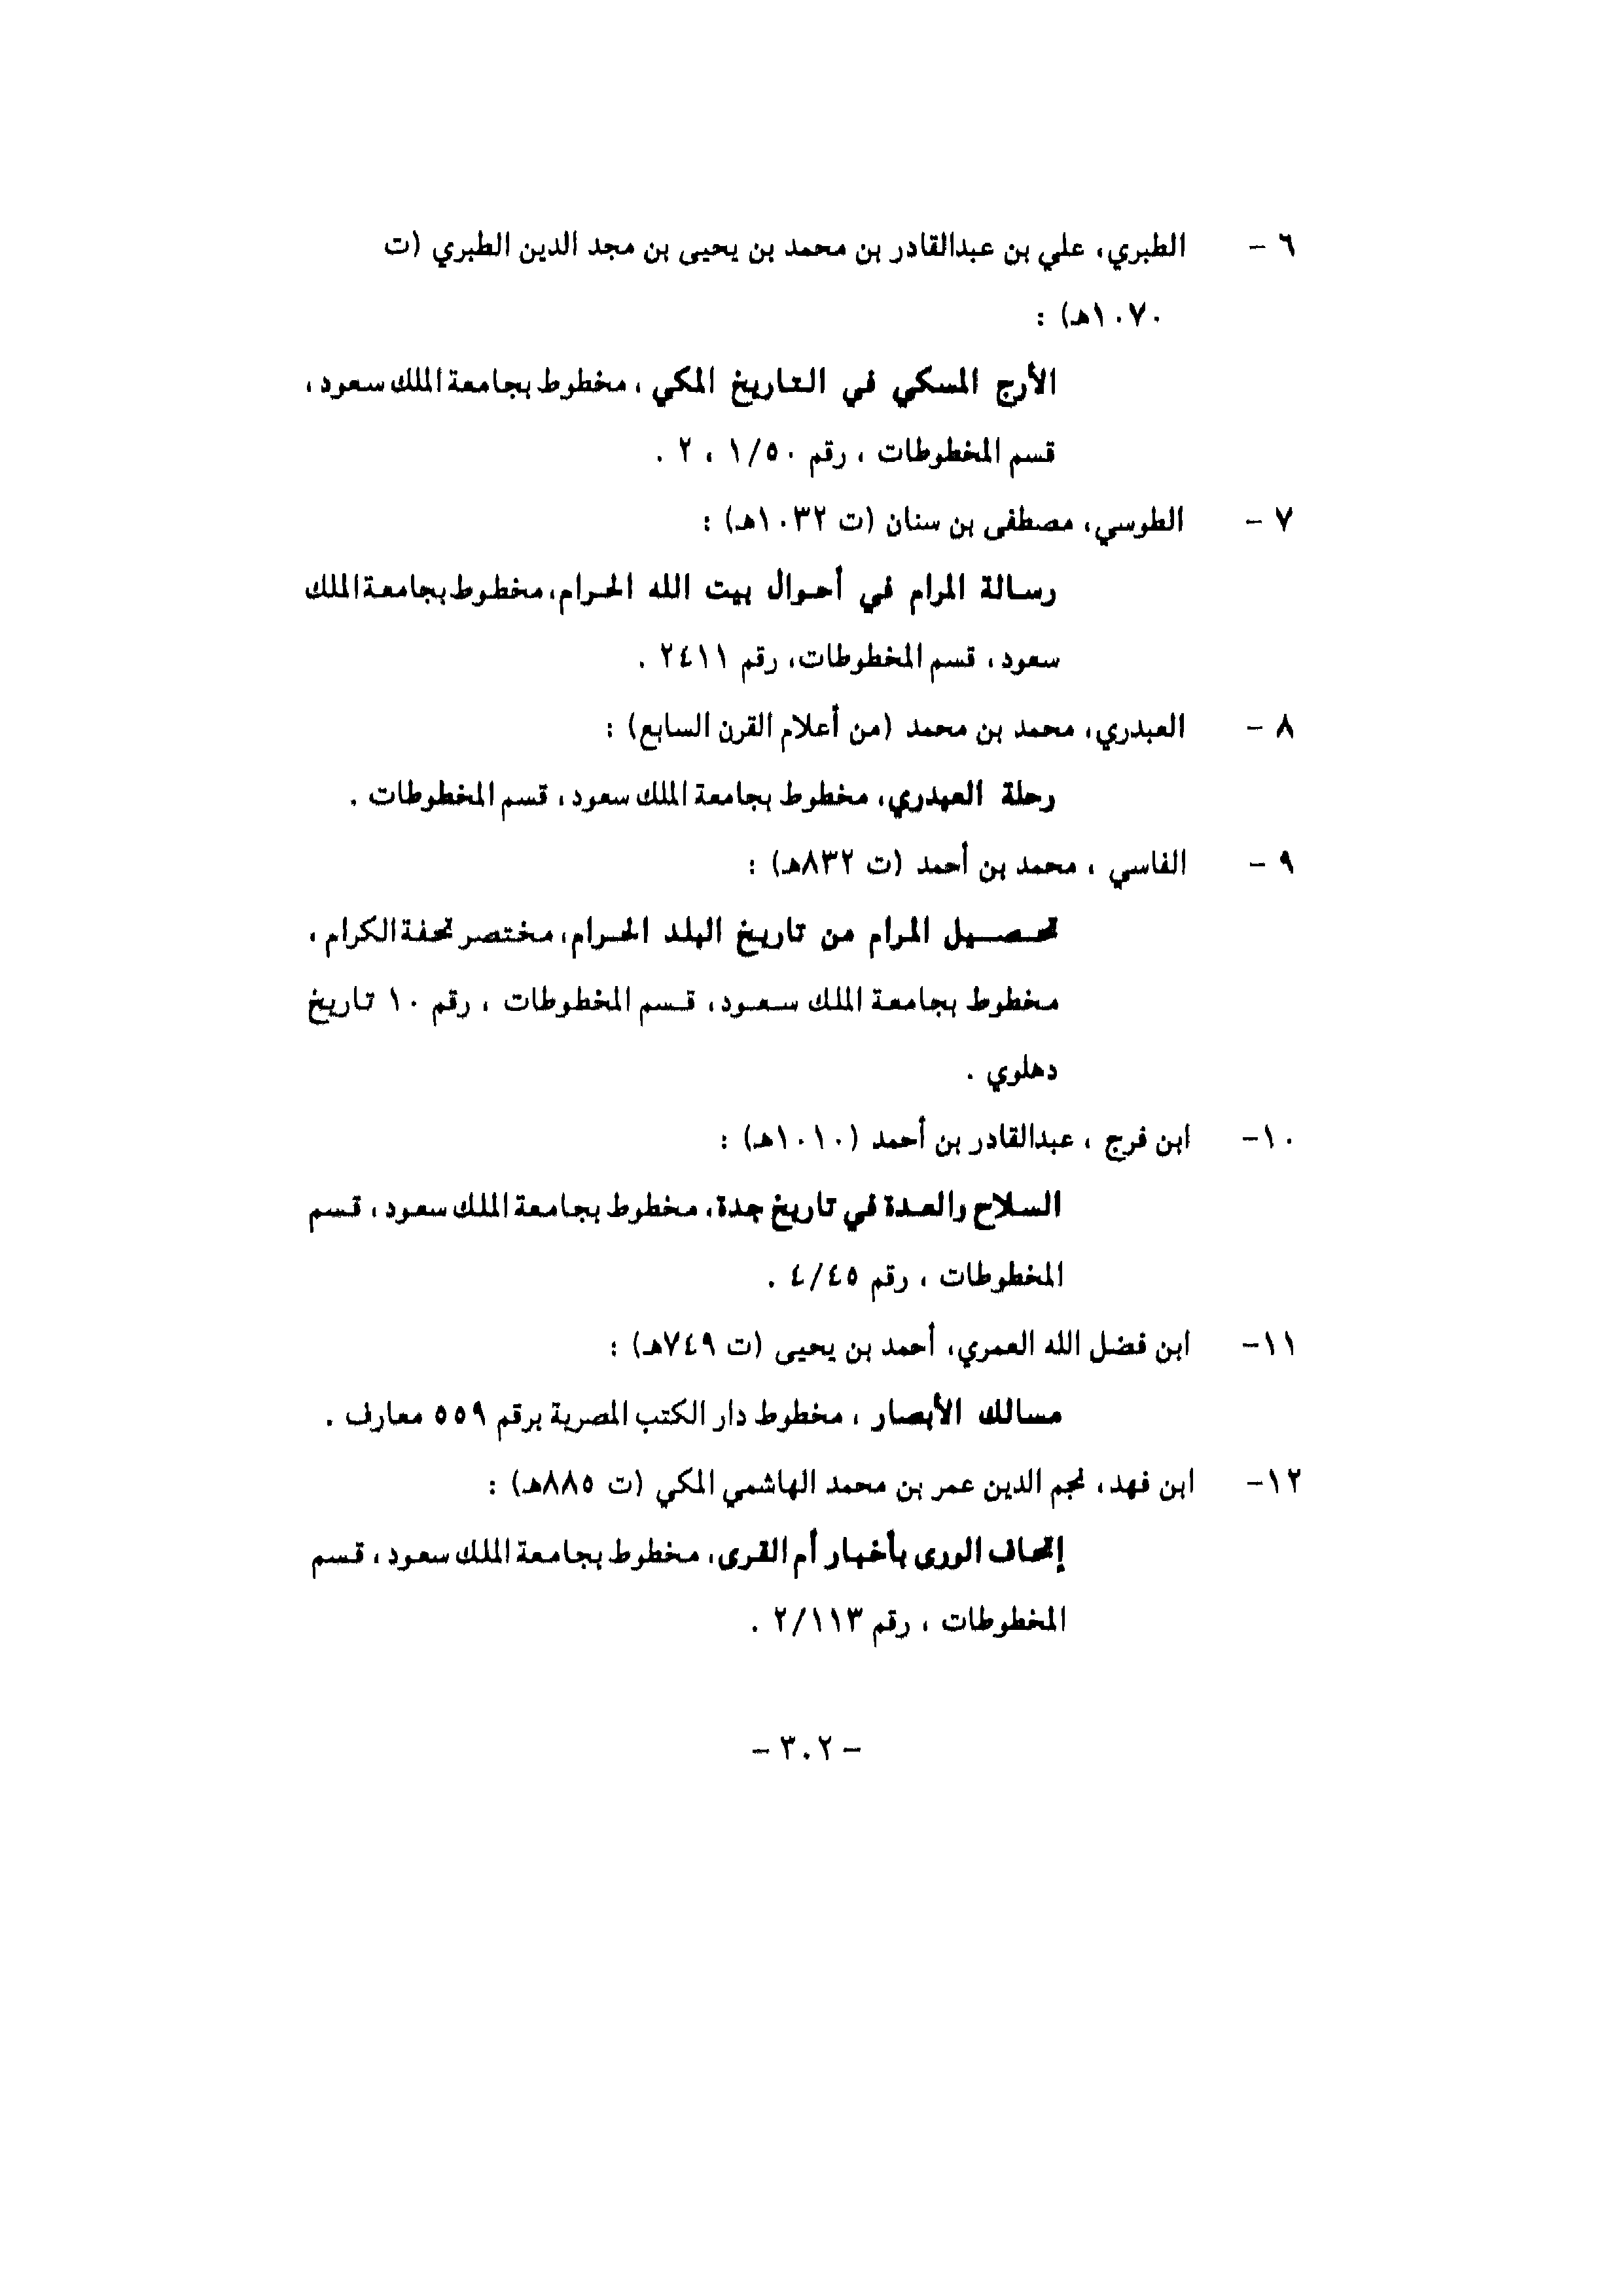 ٦ - الطبري، علي بن عبدالقادر بن محمد بن يحيى بن مجد الدين الطبري (ت
١٠٧٠هـ) :
الأرج المسكي في التاريخ المكي ، مخطوط بجامعة الملك سعود ،
قسم المخطوطات ، رقم ١/٥٠ ، ٢ .
٧ - الطوسي، مصطفى بن سنان (ت ١٠٣٢هـ) :
رسالة المرام في أحوال بيت الله الحرام، مخطوط بجامعة الملك
سعود ، قسم المخطوطات، رقم ٢٤١١ .
٨ - العبدري، محمد بن محمد (من أعلام القرن السابع) :
رحلة العبدري، مخطوط بجامعة الملك سعود ، قسم المخطوطات .
٩ - الفاسي ، محمد بن أحمد (ت ٨٣٢هـ) :
تحصيل المرام من تاريخ البلد الحرام، مختصر تحفة الكرام ،
مخطوط بجامعة الملك سعود، قسم المخطوطات ، رقم ١٠ تاريخ
دهلوي .
١٠- ابن فرج ، عبدالقادر بن أحمد (١٠١٠هـ) :
السلاح والعدة في تاريخ جدة، مخطوط بجامعة الملك سعود ، قسم
المخطوطات ، رقم ٤/٤٥ .
١١- ابن فضل الله العمري، أحمد بن يحيى (ت ٧٤٩هـ) :
مسالك الأبصار ، مخطوط دار الكتب المصرية برقم ٥٥٩ معارف .
١٢- ابن فهد، نجم الدين عمر بن محمد الهاشمي المكي (ت ٨٨٥هـ) :
إتحاف الورى بأخبار أم القرى، مخطوط بجامعة الملك سعود ، قسم
المخطوطات ، رقم ٢/١١٣ .
- ٣٠٢ -